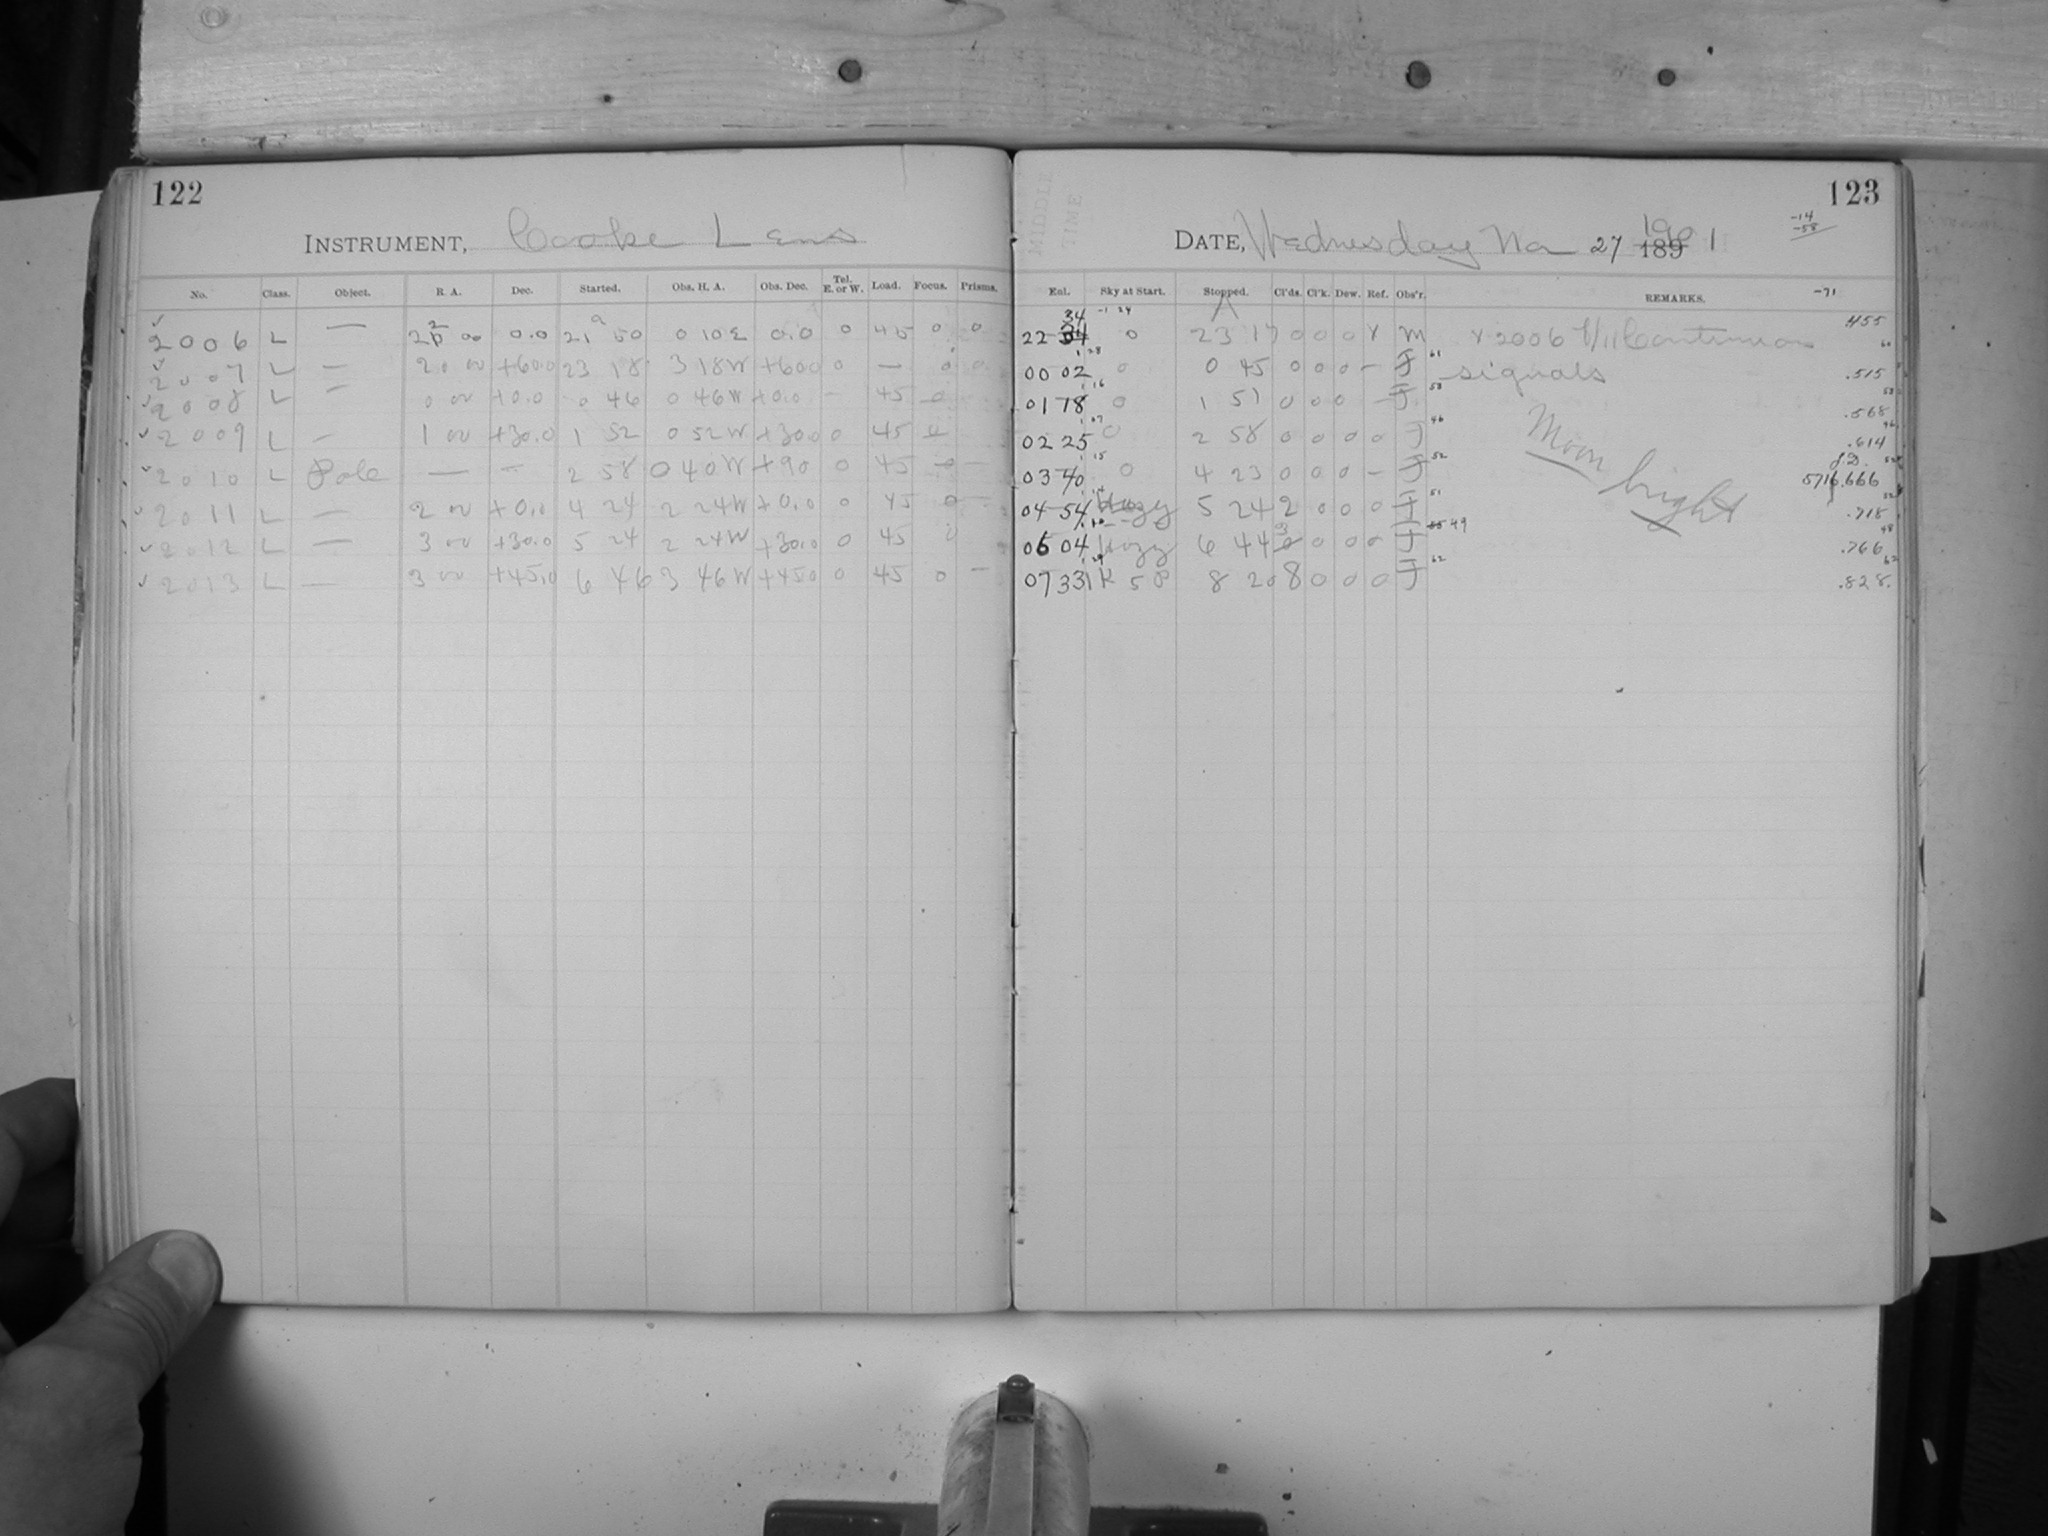 122
INSTRUMENT, Cooke Lens
No. Class. Object. R. A. Dec. Started. Obs. H. A. Obs. Dec. Tel. E. or W. Load. Focus. Prisms.
2006 L — 22 00 0.0 21 50 0 10 E 0.0 0 45 0 0
2007 L — 20 00 +60.0 23 18 3 18 W +60.0 0 — 0 0
2008 L — 0 00 +0.0 0 46 0 46 W +0.0 — 45 0
2009 L — 1 00 +30.0 1 52 0 52 W +30.0 0 45 0
2010 L Pole — — 2 58 0 40 W +90 0 45 0 —
2011 L — 2 00 +0.0 4 24 2 24 W +0.0 0 45 0 —
2012 L — 3 00 +30.0 5 24 2 24 W +30.0 0 45 0
2013 L — 3 00 +45.0 6 46 3 46 W +45.0 0 45 0 —
123
MIDDLE TIME
DATE, Wednesday Nov 27 1901
189
-14
-58
Ent. Sky at Start. Stopped. Cl'ds. Cl'k. Dew. Ref. Obs'r. REMARKS. -71
22 34 0 23 17 0 0 0 Y M Y 2006 .455
00 02 0 0 45 0 0 0 — J signals .515
01 18 0 1 51 0 0 0 — J .568
02 25 0 2 58 0 0 0 0 J Moon bright .614
J.D.
03 40 0 4 23 0 0 0 — J 5716.666
04 54 Hazy 5 24 2 0 0 0 J .718
06 04 Hazy 6 44 3 0 0 0 J .766
07 33 K 5 P 8 20 8 0 0 0 J .828